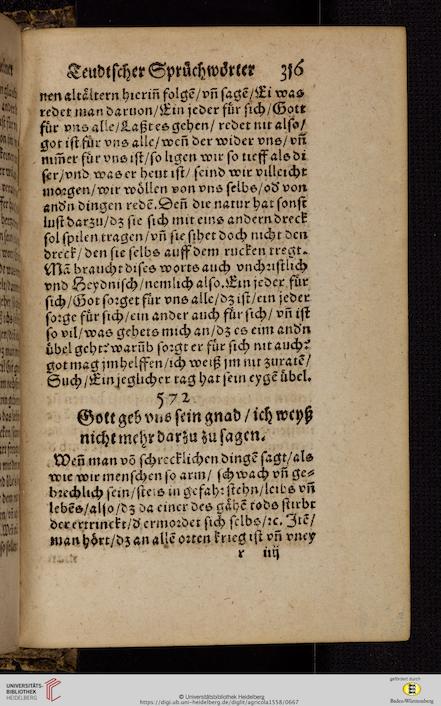 Teudtscher Sprüchwörter 316
nen altältern hierin̄ folgẽ/vn̄ sagẽ/Ei was
redet man daruon/Ein jeder für sich/Gott
für vns alle/Laßt es gehen/ redet nit also/
got ist für vns alle/weñ der wider vns/ vn̄
nim̃er für vns ist/so ligen wir so tieff als di
ser/vnd was er heut ist/ seind wir villeicht
morgen/wir wöllen von vns selbs/od' von
andn dingen redẽ. Deñ die natur hat sonst
lust darzu/dz sie sich mit eins andern dreck
sol spilen tragen/vn̄ sie sihet doch nicht den
dreck/den sie selbs auff dem rucken tregt.
Mã braucht dises worts auch vnchristlich
vnd Heydnisch/nemlich also. Ein jeder für
sich/Got sorget für vns alle/dz ist/ein jeder
sorge für sich/ein ander auch für sich/ vn̄ ist
so vil/was gehets mich an/dz es eim andn
übel geht? warũb sorgt er für sich nit auch?
got mag jm helffen/ich weiß jm nit zuratẽ/
Such/Ein jeglicher tag hat sein eygẽ übel.
572
Gott geb vns sein gnad/ich weyß
nicht mehr darzu zu sagen.
Weñ man võ schrecklichen dingẽ sagt/als
wie wir menschen so arm/ schwach vn̄ ge=
brechlich sein/stets in gefahr stehn/leibs vn̄
lebẽs/also/dz da einer des gähẽ tods stirbt
der ertrinckt/d' ermordet sich selbs/ꝛc. Itẽ/
man hört/dz an allẽ orten krieg ist vn̄ vney
r iiij
UNIVERSITÄTS-
BIBLIOTHEK
HEIDELBERG
© Universitätsbibliothek Heidelberg
https://digi.ub.uni-heidelberg.de/diglit/agricola1558/0667
gefördert durch
Baden-Württemberg